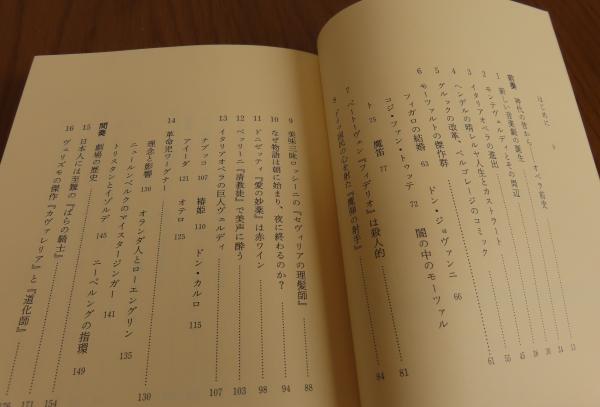 はじめに 9
前奏 神代の昔から――オペラ前史
1 新しい音楽劇の誕生
2 モンテヴェルディとその周辺
3 イタリアオペラの進出
4 ヘンデルの晴れヤカ人生とカストラート
5 グルックの改革、ペルゴレージのコミック
6 モーツァルトの傑作群 61
フィガロの結婚 63 ドン・ジョヴァンニ 66
コジ・ファン・トゥッテ 72 闇の中のモーツァル
ト 75 魔笛 77
7 ベートーヴェン『フィデリオ』は殺人的 81
8 ドイツ国民の心を射た『魔弾の射手』 84
9 美味三昧ロッシーニの『セヴィリアの理髪師』 88
10 なぜ物語は朝に始まり、夜に終わるのか? 94
11 ドニゼッティ『愛の妙薬』は赤ワイン 98
12 ベッリーニ『清教徒』で美声に酔う 103
13 イタリアオペラの巨人ヴェルディ 107
ナブッコ 107 椿姫 110 ドン・カルロ 115
アイーダ 121 オテロ 125
14 革命児ワーグナー 130
理念と影響 130 オランダ人とローエングリン 135
ニュールンベルクのマイスタージンガー 141
トリスタンとイゾルデ 145 ニーベルングの指環 149
間奏 劇場の歴史 154
15 日本人には至難の『ばらの騎士』 171
16 ヴェリズモの傑作『カヴァレリア』と『道化師』 176